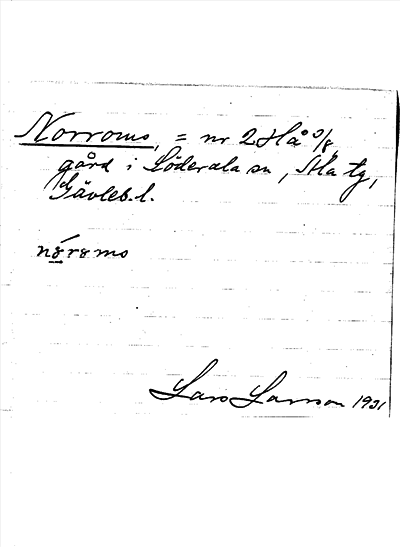 Norroms, = nr 2 Hå 3/8
gård i Söderala sn, Ala tg,
Gävleb. l.
nóroms
Lars Larsson 1931